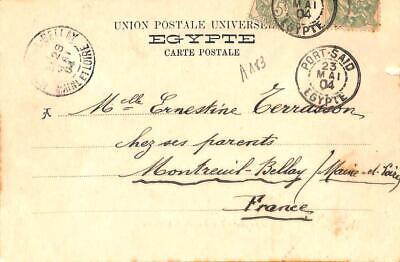 UNION POSTALE UNIVERSELLE
EGYPTE
CARTE POSTALE
MAI
04
BELLAY
23
MAINE ET LOIRE
PORT-SAID
23
MAI
04
EGYPTE
A 183
Melle Ernestine Terrasson
chez ses parents
Montreuil-Bellay (Maine-et-Loire
France